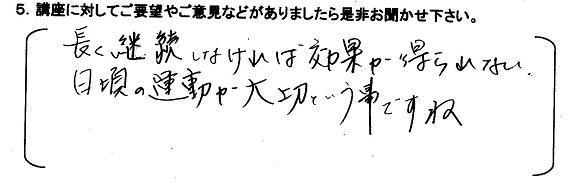 5. 講座に対してご要望やご意見などがありましたら是非お聞かせ下さい。
長く継続しなければ効果が得られない.
日頃の運動が大切という事ですね